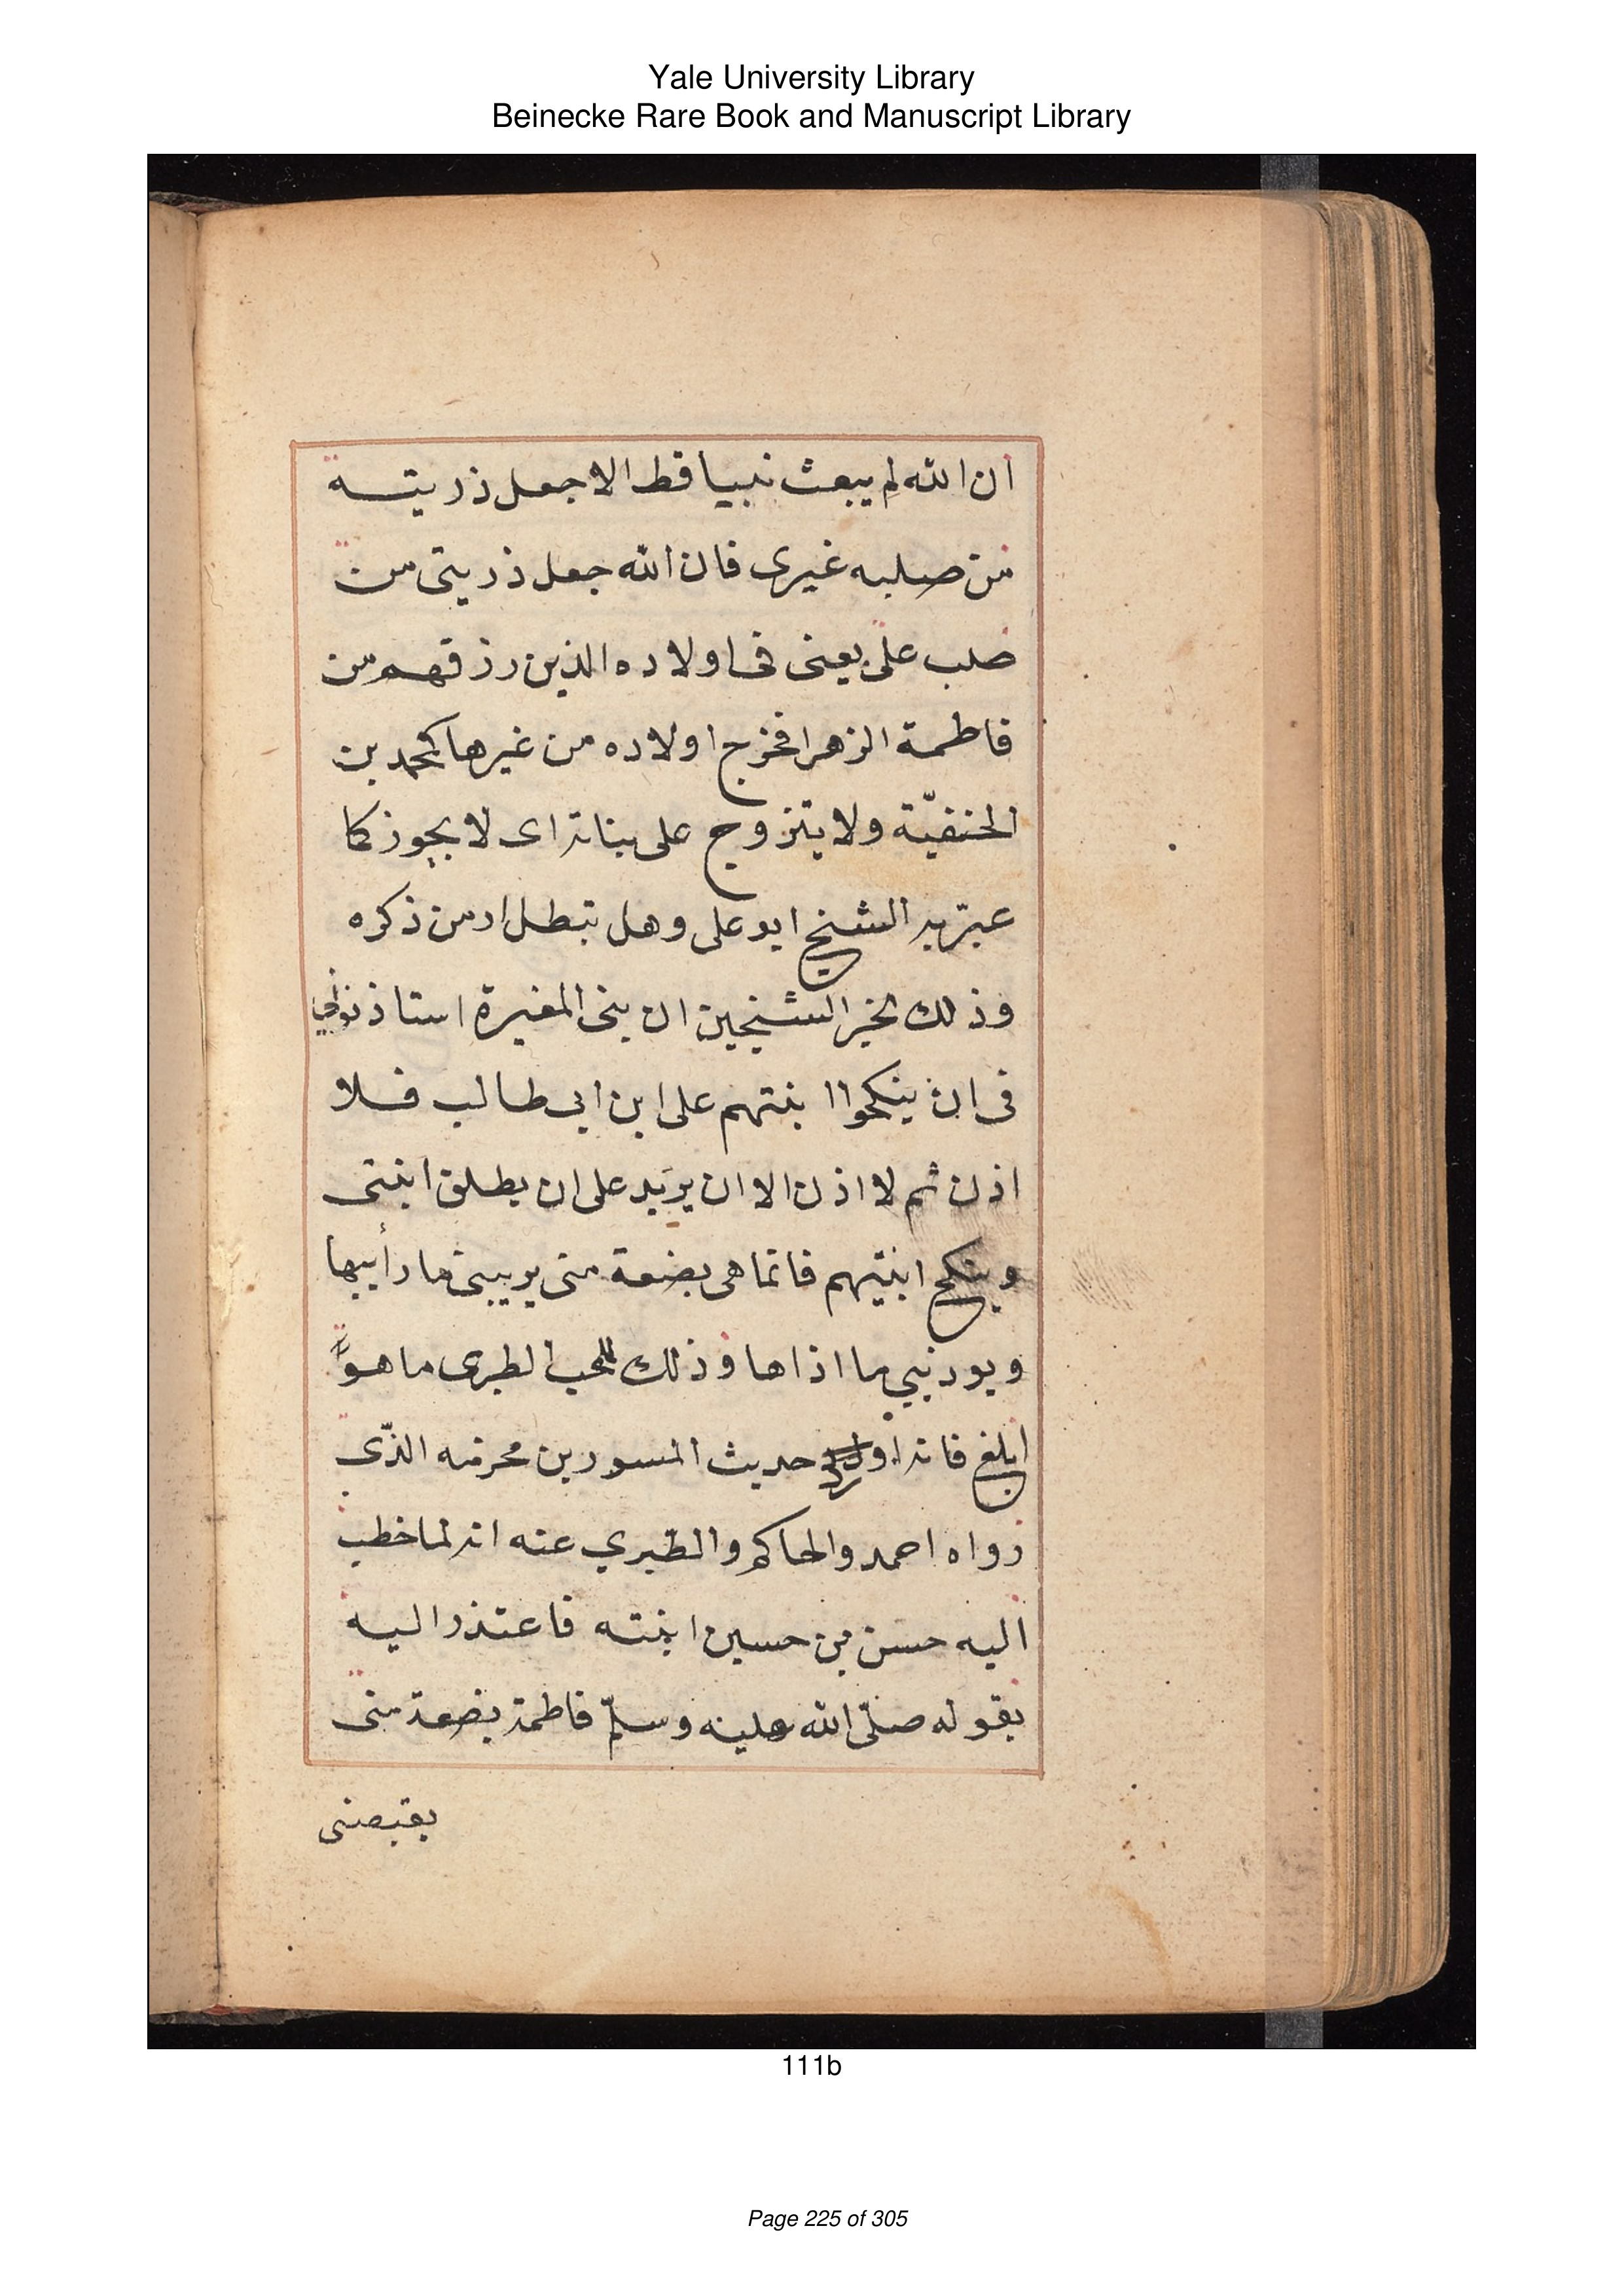 Yale University Library
Beinecke Rare Book and Manuscript Library
ان الله لم يبعث نبيا قط الا جعل ذريته
من صلبه غيرى فان الله جعل ذريتى من
صلب على يعنى فى اولاده الذين رزقهم من
فاطمة الزهرا فخرج اولاده من غيرها كمحمد بن
الحنفيّة ولا يتزوج على بناته اى لا يجوز كما
عبّر به الشيخ ابو على وهل تبطل ادمن ذكره
وذلك لخبر الشيخين ان بنى المغيرة استاذنونى
فى ان ينكحوا ابنتهم على ابن ابى طالب فلا
اذن ثم لا اذن الا ان يريد على ان يطلق ابنتى
وينكح ابنتهم فانما هى بضعة منى يريبنى ما رأيبها
ويوذنيي ما اذاها وذلك للمحب الطبرى ما هو
ابلغ فانه اورد حديث المسور بن محرمه الذّى
رواه احمد والحاكم والطبري عنه انه لما خطب
اليه حسن بن حسين ابنته فاعتذر اليه
بقوله صلّى الله عليه وسلّم فاطمة بضعة منى
يقبضنى
111b
Page 225 of 305